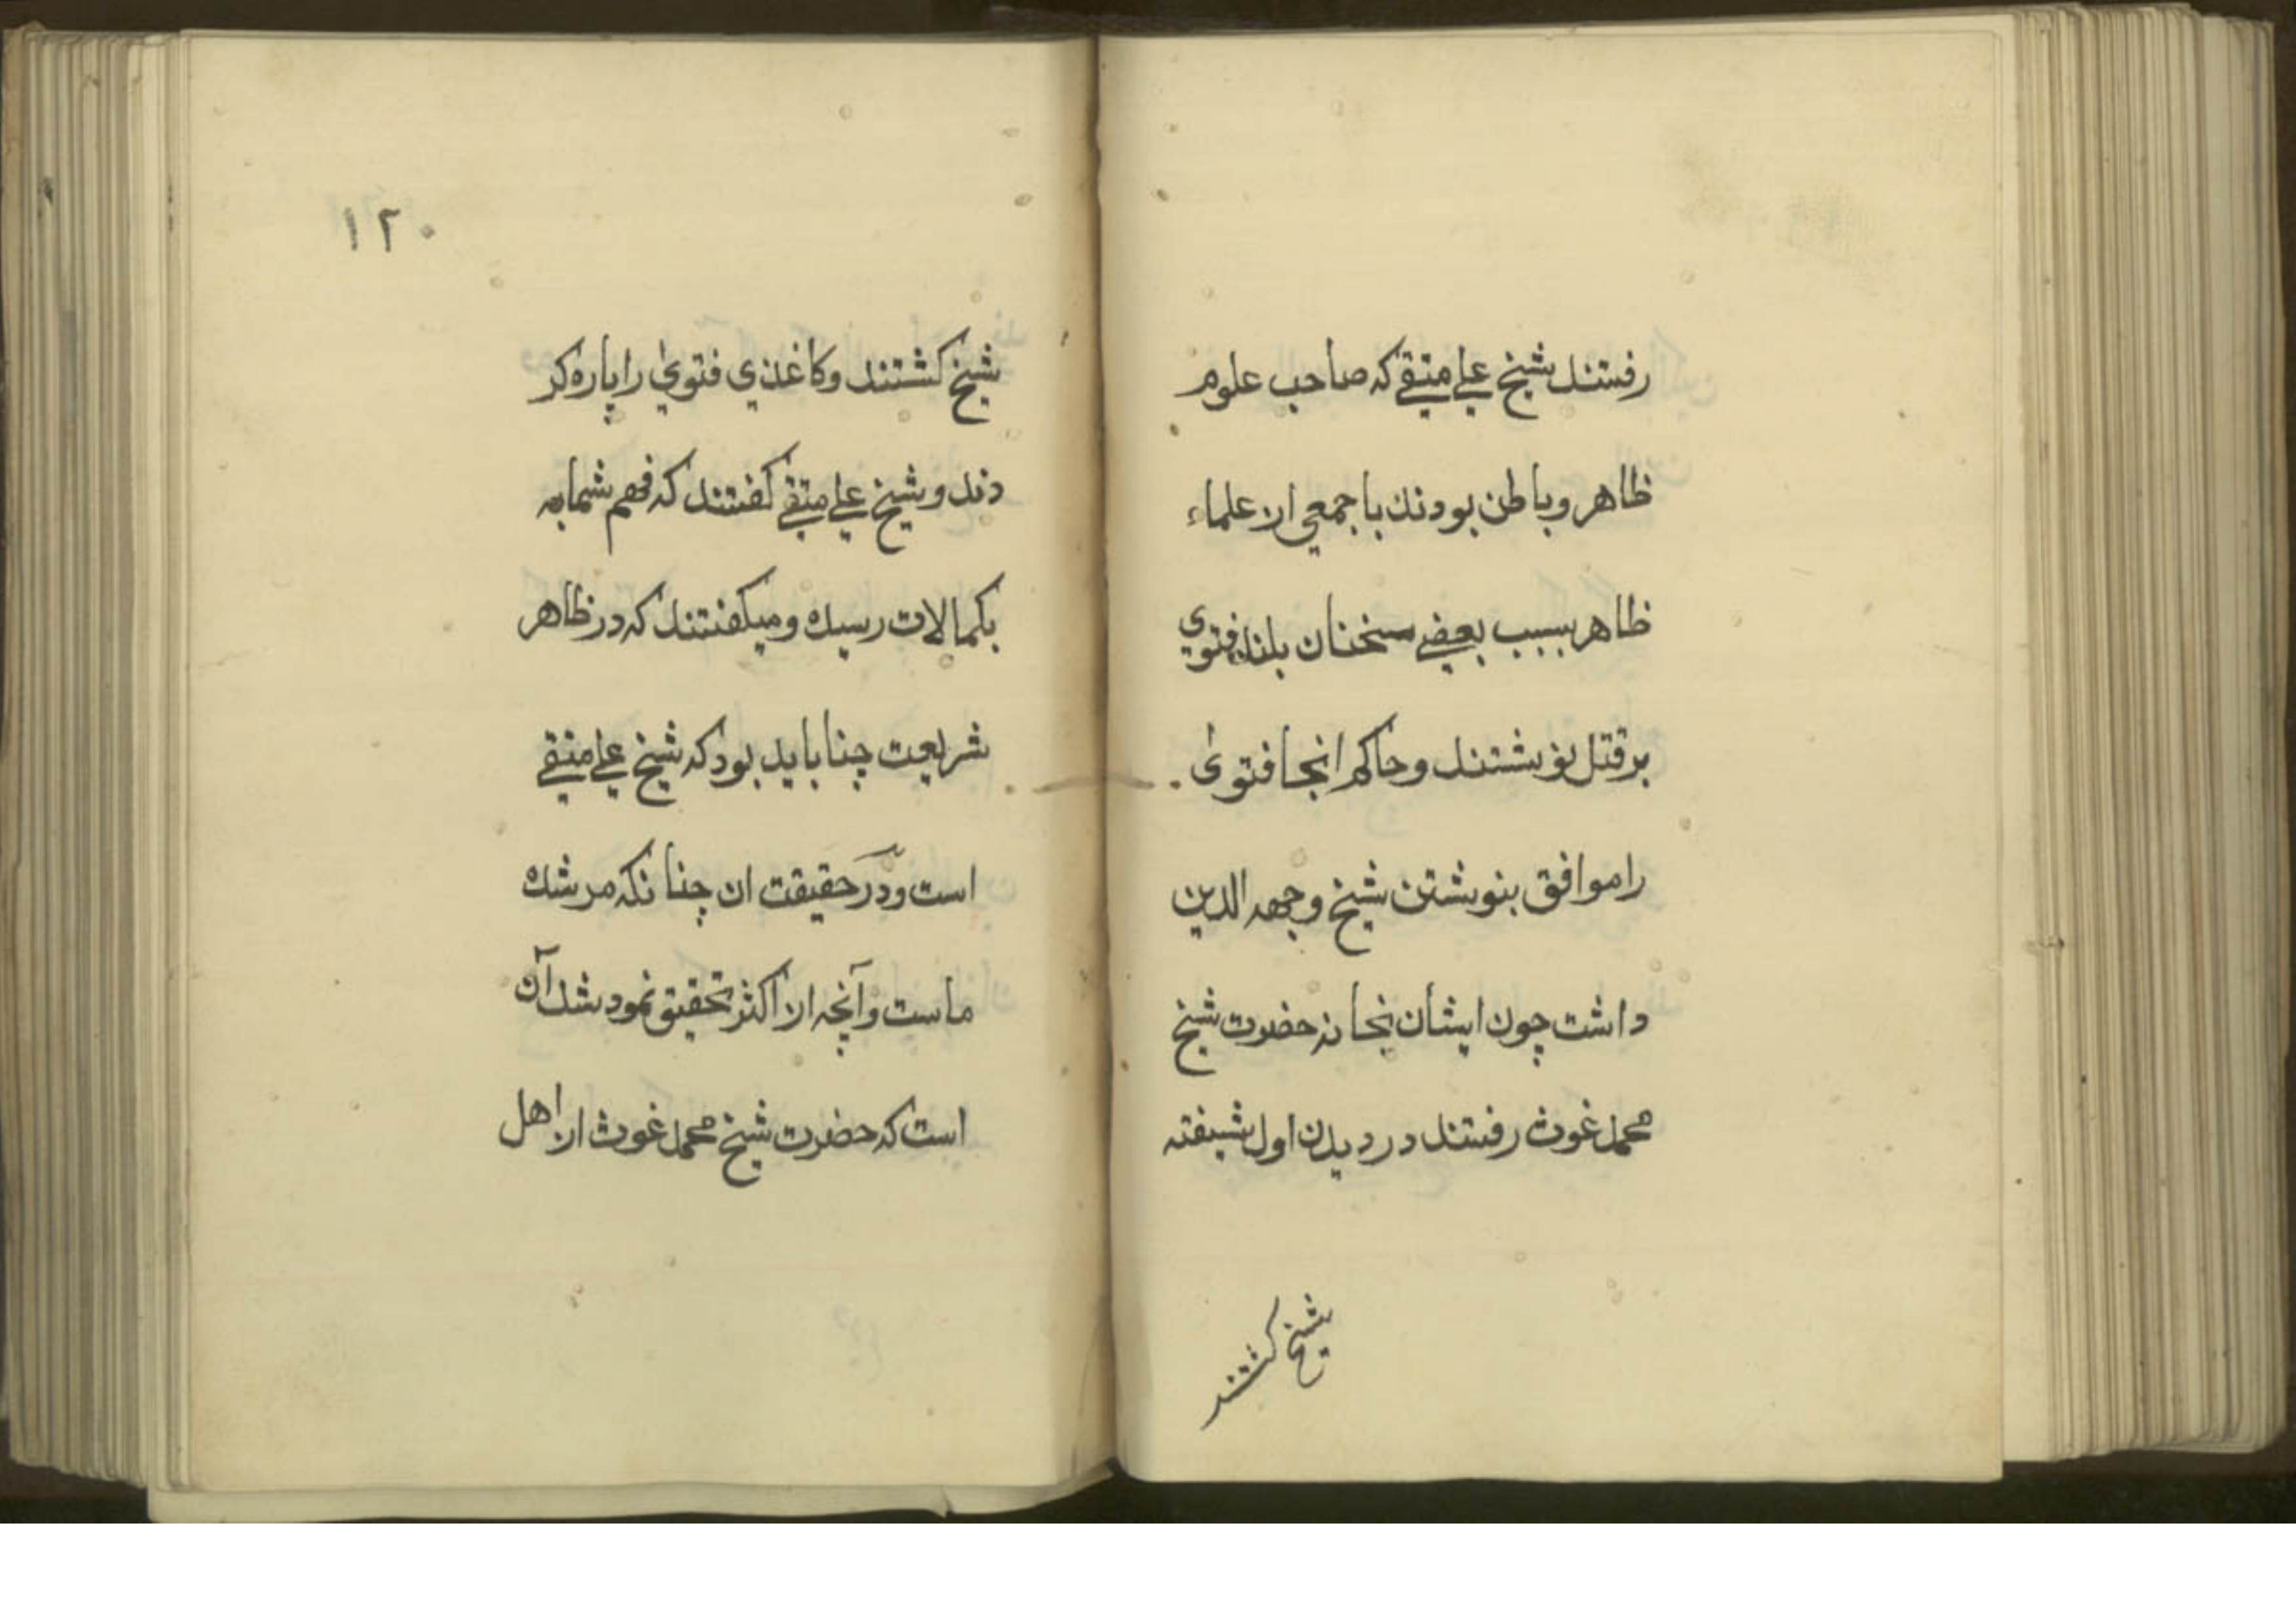 رفتند شیخ علی متقے که صاحب علوم
ظاهر و باطن بودند با جمعی از علماء
ظاهر بسبب بعضے سخنان بلند فتوی
بر قتل نوشتند و حاکم انجا فتوی
را موافق بنوشتن شیخ وجهه الدین
داشت چون ایشان بخانه حضرت شیخ
محمد غوث رفتند در دیدن اول شیفته
شیخ کشتند
۱۲۰
شیخ کشتند و کاغذی فتوی را پاره کر
دند و شیخ علی متقے کفتند که فهم شما به
بکمالات رسیده و میکفتند که در ظاهر
شریعت چنا باید بود که شیخ علی متقے
است و در حقیقت ان چنانکه مرشد
ماست و آنچه از اکثر تحقیق نمود شد آن
است که حضرت شیخ محمد غوث از اهل